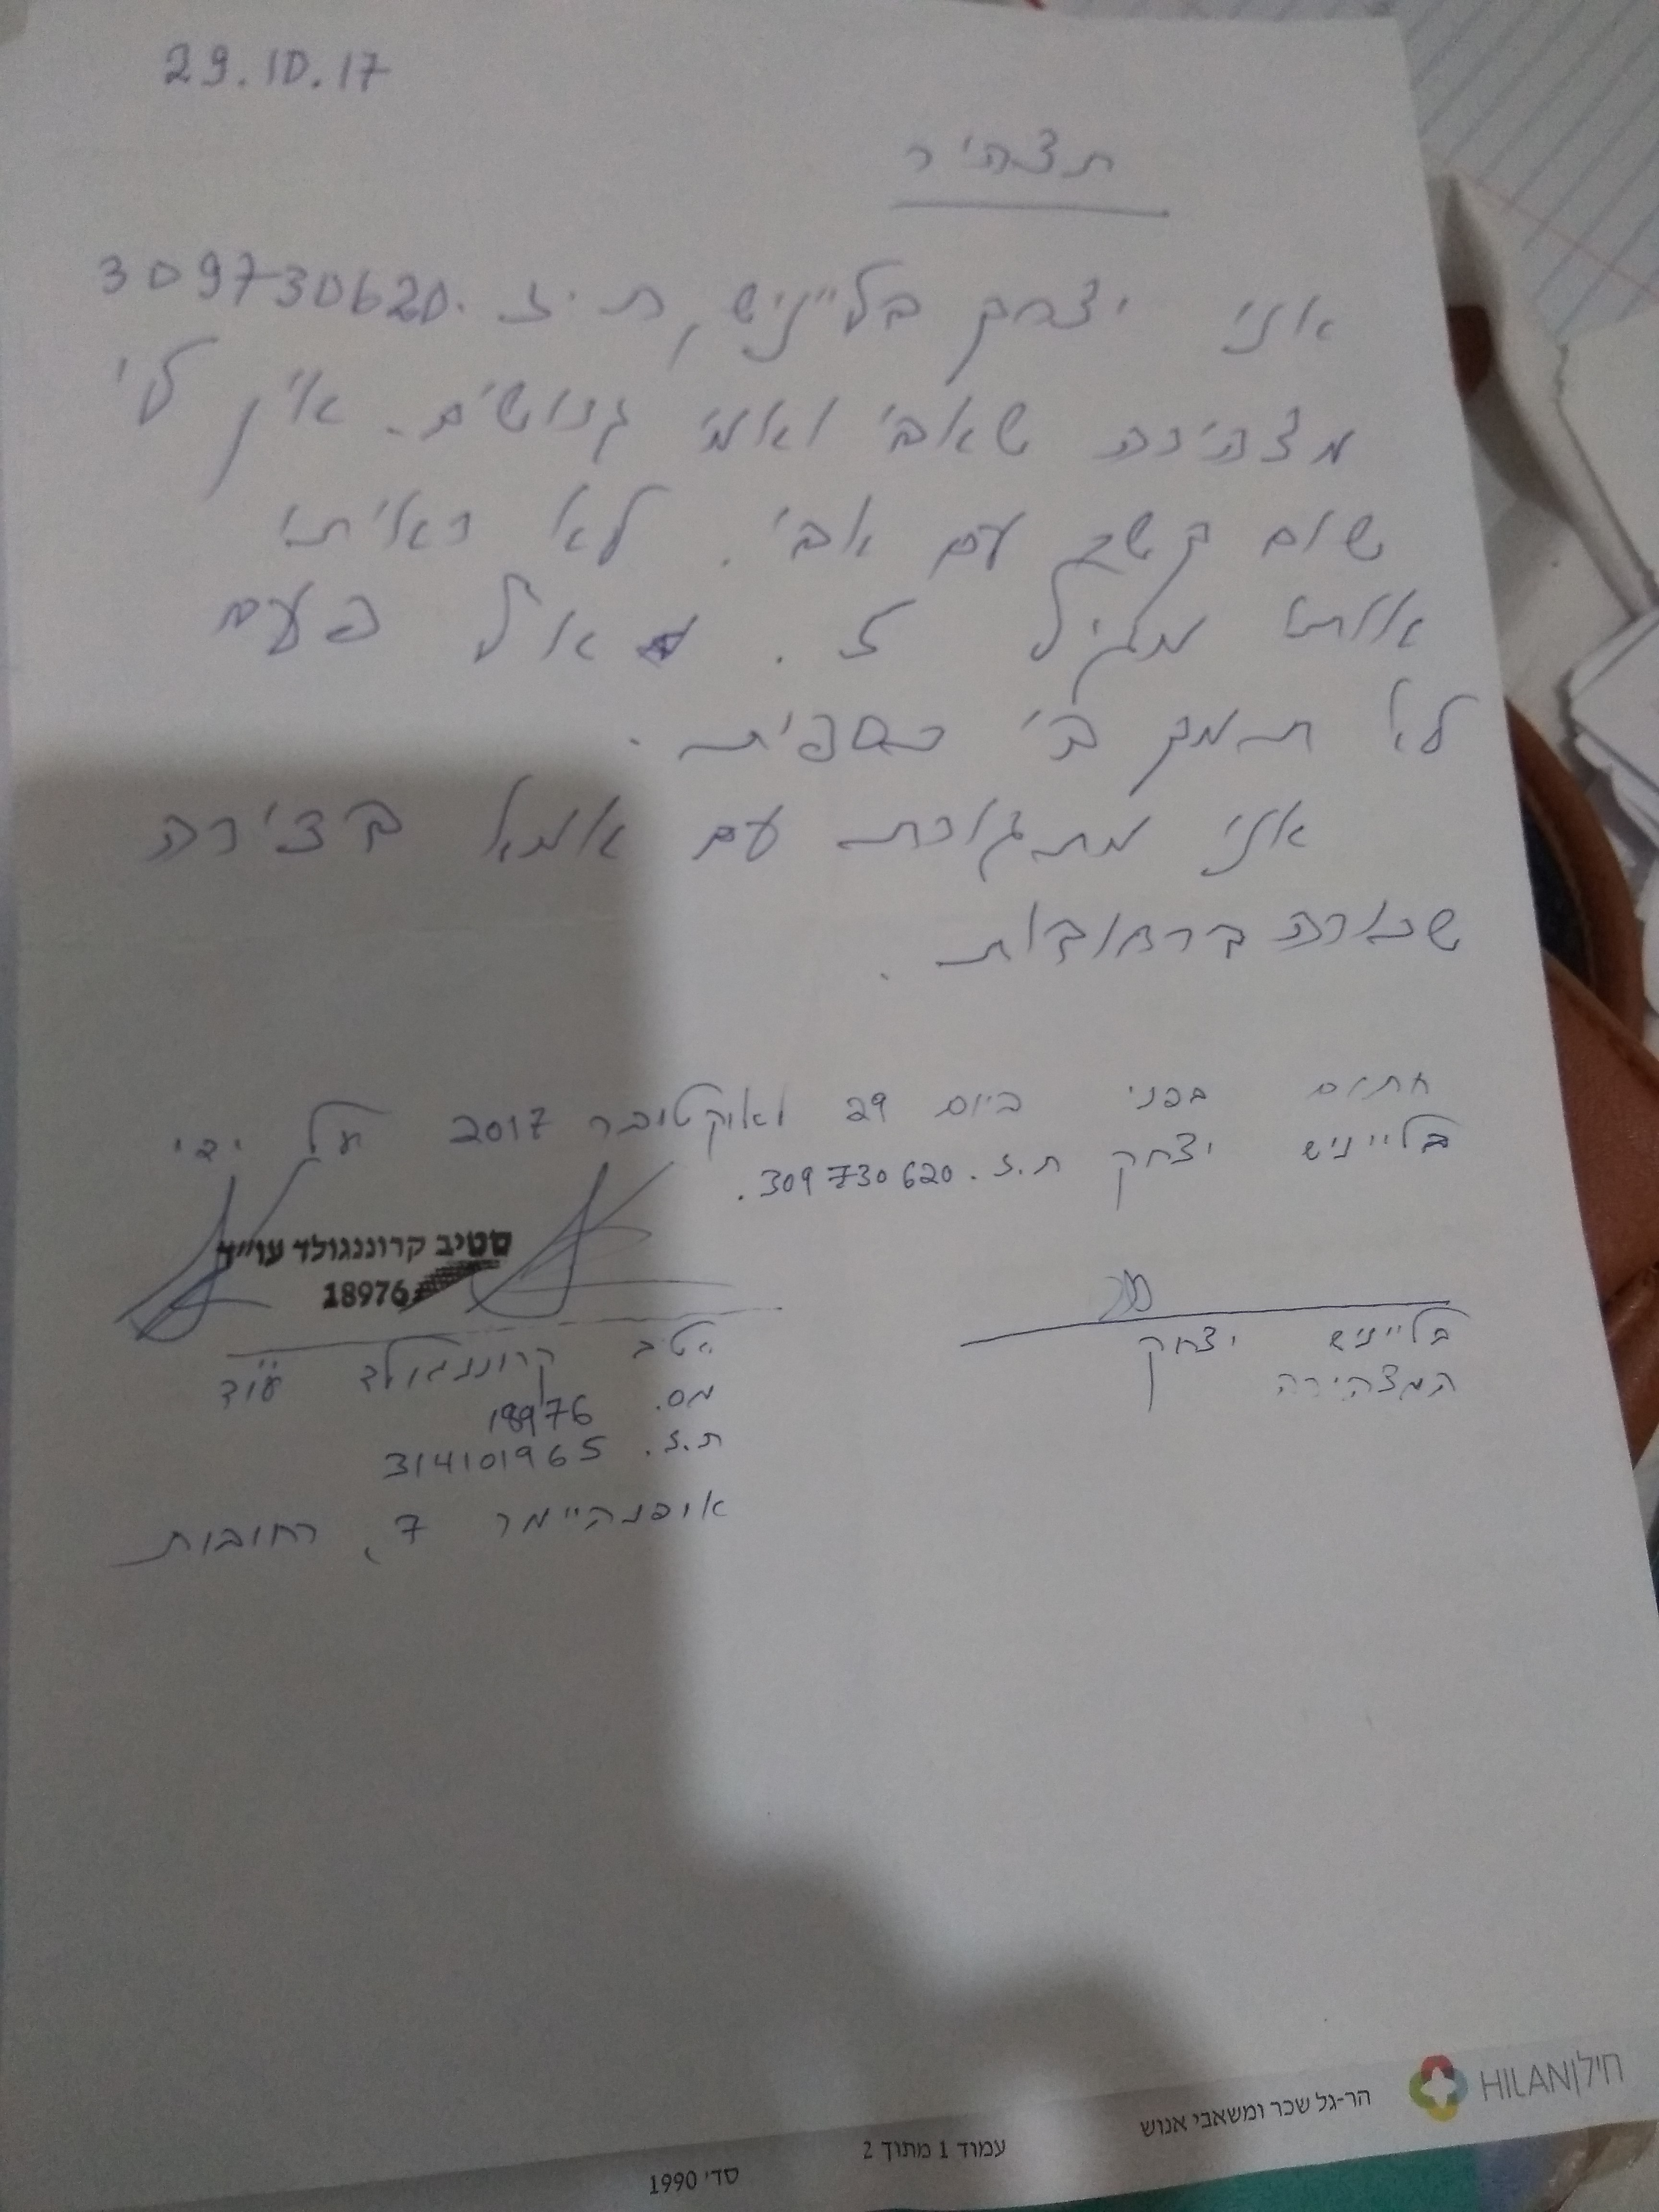 29.10.17
תצהיר
אני יצחק בלייניש, ת.ז. 309730620
מצהירה שאבי ואמי גרושים. אין לי
שום קשר עם אבי. לא ראיתי
אותו מגיל 7. אף פעם
לא תמך בי כספית.
אני מתגוררת עם אמא בדירה
שכורה ברחובות.
חתום בפני ביום 29 ואוקטובר 2017 על ידי
בלייניש יצחק ת.ז. 309730620.
סטיב קרוננגולד עו"ד
18976
בלייניש יצחק
המצהירה
קרוננגולד עו"ד
מס. 18976
ת.ז. 314101965
אופנהיימר 7, רחובות
חילן HILAN
הר-גל שכר ומשאבי אנוש
עמוד 1 מתוך 2
סדי 1990